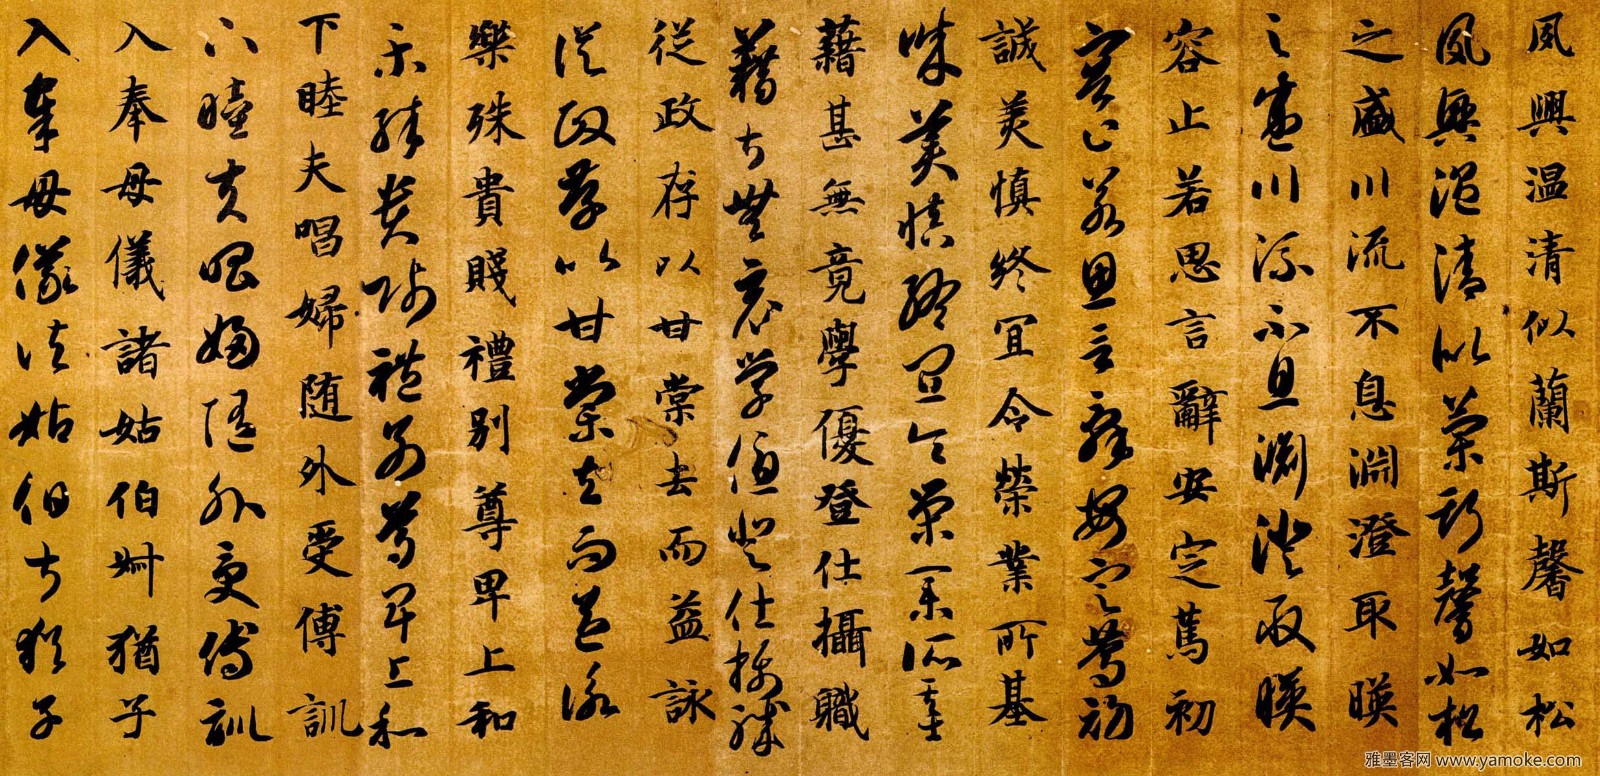 夙興温清似蘭斯馨如松
夙興温清似蘭斯馨如松
之盛川流不息淵澄取暎
之盛川流不息淵澄取暎
容止若思言辭安定篤初
容止若思言辭安定篤初
誠美慎終宜令榮業所基
誠美慎終宜令榮業所基
藉甚無竟學優登仕攝職
藉甚無竟學優登仕攝職
從政存以甘棠去而益詠
從政存以甘棠去而益詠
樂殊貴賤禮別尊卑上和
樂殊貴賤禮別尊卑上和
下睦夫唱婦随外受傅訓
下睦夫唱婦随外受傅訓
入奉母儀諸姑伯叔猶子
入奉母儀諸姑伯叔猶子
雅墨客网 www.yamoke.com